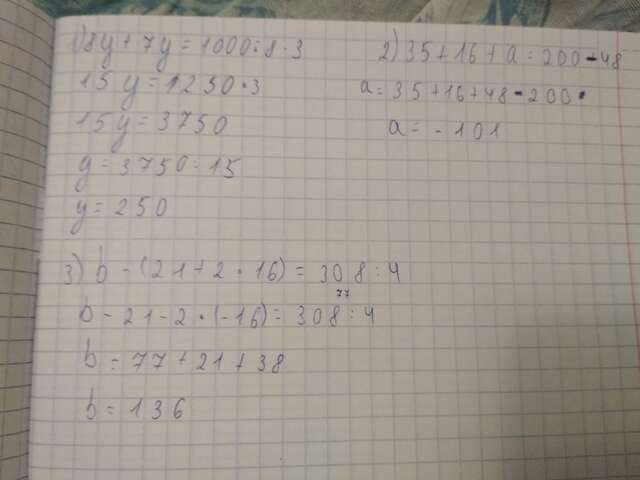 1) 8y + 7y = 1000 : 8 · 3
15y = 1250 · 3
15y = 3750
y = 3750 : 15
y = 250
2) 35 + 16 + a = 200 - 48
a = 35 + 16 + 48 - 200
a = - 101
3) b - (21 + 2 · 16) = 308 : 4
77
b - 21 - 2 · (-16) = 308 : 4
b = 77 + 21 + 38
b = 136